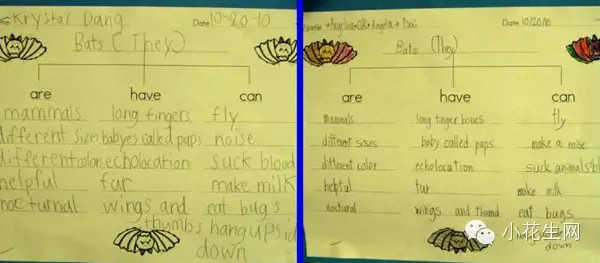 Krystal Dang
Date 10-20-10
Bats (They)
are have can
mammals long fingers fly
different size babyes called pups noise
different color echolocation suck blood
helpful fur make milk
nocturnal wings and thumbs eat bugs
hang upsid down
Date 10/20/10
Bats (They)
are have can
mammals long finger bones fly
different sises baby called pups make a noise
different color echolocation suck animals bl
helpful fur make milk
noctural wings and thumb eat bugs
hang
down
小花生网